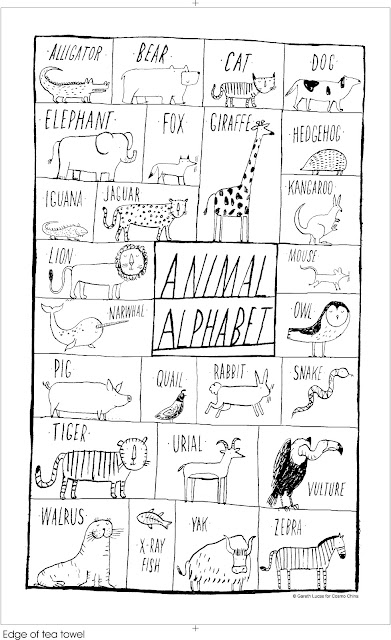 ALLIGATOR
BEAR
CAT
DOG
ELEPHANT
FOX
GIRAFFE
HEDGEHOG
IGUANA
JAGUAR
KANGAROO
LION
ANIMAL
ALPHABET
MOUSE
NARWHAL
OWL
PIG
QUAIL
RABBIT
SNAKE
TIGER
URIAL
VULTURE
WALRUS
X-RAY
FISH
YAK
ZEBRA
© Gareth Lucas for Cosmo China
Edge of tea towel